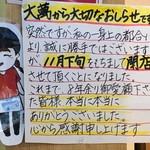 大萬から大切なおしらせです
突然ですが私の一身上の都合に
より誠に勝手ではございますが
が、11月下旬をもちまして閉店
させて頂くことになりました。
これまで2年余り御愛顧下さ
た皆様 本当に本当に
ありがとうございました。
心から感謝申し上げます